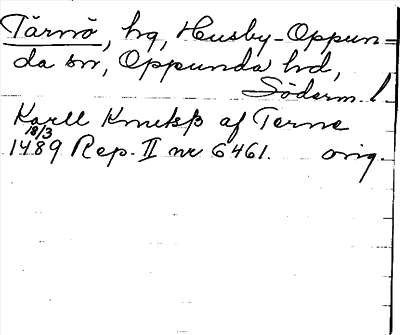 Tärnö, hg, Husby-Oppun=
da sn, Oppunda hd,
Söderm. l.
Karll Knutss af Terne
18/3
1489 Rep. II nr 6461. orig.